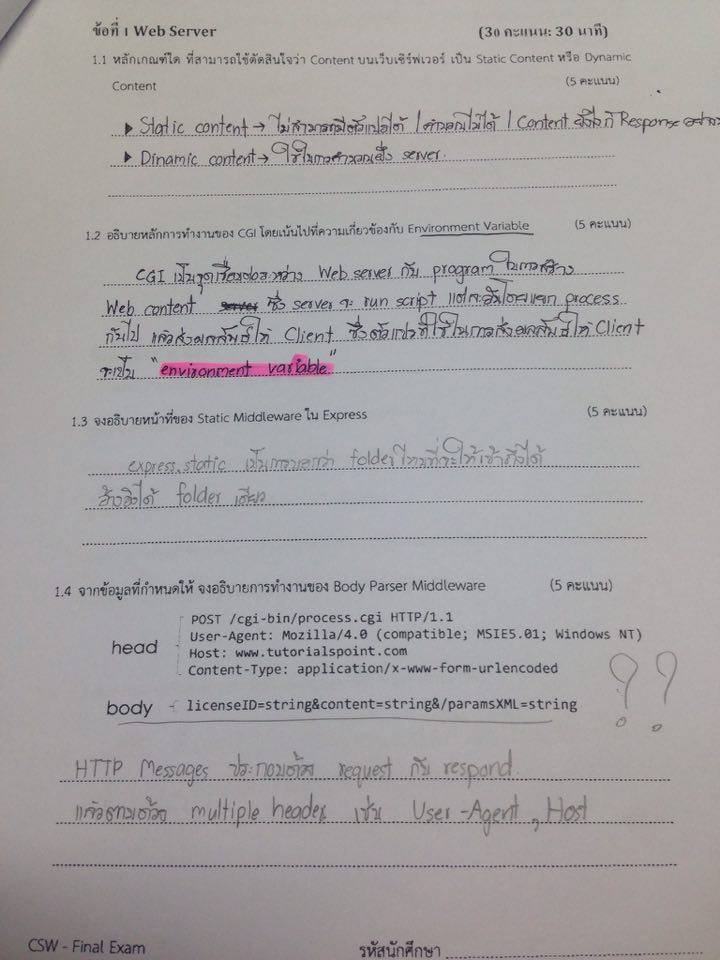 ข้อที่ 1 Web Server (30 คะแนน: 30 นาที)
1.1 หลักเกณฑ์ใด ที่สามารถใช้ตัดสินใจว่า Content บนเว็บเซิร์ฟเวอร์ เป็น Static Content หรือ Dynamic
Content (5 คะแนน)
▸ Static content → ไม่สามารถมีตัวแปรได้ / คำนวณไม่ได้ / Content ยังไงก็ Response
▸ Dinamic content → ใช้ในการคำนวณฝั่ง server.
1.2 อธิบายหลักการทำงานของ CGI โดยเน้นไปที่ความเกี่ยวข้องกับ Environment Variable (5 คะแนน)
CGI เป็นจุดเชื่อมต่อระหว่าง Web server กับ program ในการสร้าง
Web content ซึ่ง server จะ run script แต่ละอันโดยแยก process
กันไป แล้วส่งผลลัพธ์ให้ Client ซึ่งตัวแปรที่ใช้ในการส่งผลลัพธ์ให้ Client
จะเป็น "environment variable"
1.3 จงอธิบายหน้าที่ของ Static Middleware ใน Express (5 คะแนน)
express.static เป็นการบอกว่า folder ไหนที่จะให้เข้าถึงได้
อ้างอิงได้ folder เดียว
1.4 จากข้อมูลที่กำหนดให้ จงอธิบายการทำงานของ Body Parser Middleware (5 คะแนน)
POST /cgi-bin/process.cgi HTTP/1.1
User-Agent: Mozilla/4.0 (compatible; MSIE5.01; Windows NT)
head Host: www.tutorialspoint.com
Content-Type: application/x-www-form-urlencoded
body licenseID=string&content=string&/paramsXML=string
??
HTTP Messages ประกอบด้วย request กับ respond
แล้วตามด้วย multiple header เช่น User-Agent, Host
CSW - Final Exam รหัสนักศึกษา